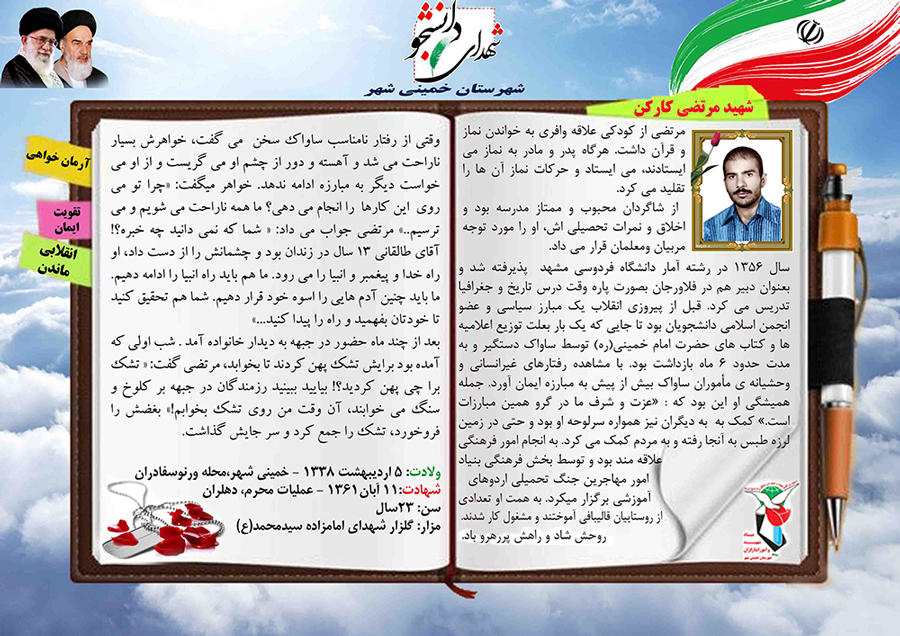 شهدای دانشجو
شهرستان خمینی شهر
شهید مرتضی کارکن
مرتضی از کودکی علاقه وافری به خواندن نماز
و قرآن داشت. هرگاه پدر و مادر به نماز می
ایستادند، می ایستاد و حرکات نماز آن ها را
تقلید می کرد.
از شاگردان محبوب و ممتاز مدرسه بود و
اخلاق و نمرات تحصیلی اش، او را مورد توجه
مربیان ومعلمان قرار می داد.
سال ۱۳۵۶ در رشته آمار دانشگاه فردوسی مشهد پذیرفته شد و
بعنوان دبیر هم در فلاورجان بصورت پاره وقت درس تاریخ و جغرافیا
تدریس می کرد. قبل از پیروزی انقلاب یک مبارز سیاسی و عضو
انجمن اسلامی دانشجویان بود تا جایی که یک بار بعلت توزیع اعلامیه
ها و کتاب های حضرت امام خمینی(ره) توسط ساواک دستگیر و به
مدت حدود ۶ ماه بازداشت بود. با مشاهده رفتارهای غیرانسانی و
وحشیانه ی مأموران ساواک بیش از پیش به مبارزه ایمان آورد. جمله
همیشگی او این بود که : «عزت و شرف ما در گرو همین مبارزات
است.» کمک به به دیگران نیز همواره سرلوحه او بود و حتی در زمین
لرزه طبس به آنجا رفته و به مردم کمک می کرد. به انجام امور فرهنگی
علاقه مند بود و توسط بخش فرهنگی بنیاد
امور مهاجرین جنگ تحمیلی اردوهای
آموزشی برگزار میکرد. به همت او تعدادی
از روستاییان قالیبافی آموختند و مشغول کار شدند.
روحش شاد و راهش پررهرو باد.
وقتی از رفتار نامناسب ساواک سخن می گفت، خواهرش بسیار
ناراحت می شد و آهسته و دور از چشم او می گریست و از او می
خواست دیگر به مبارزه ادامه ندهد. خواهر میگفت: «چرا تو می
روی این کارها را انجام می دهی؟ ما همه ناراحت می شویم و می
ترسیم..» مرتضی جواب می داد: « شما که نمی دانید چه خبره؟!
آقای طالقانی ۱۳ سال در زندان بود و چشمانش را از دست داد، او
راه خدا و پیغمبر و انبیا را می رود. ما هم باید راه انبیا را ادامه دهیم.
ما باید چنین آدم هایی را اسوه خود قرار دهیم. شما هم تحقیق کنید
تا خودتان بفهمید و راه را پیدا کنید...»
بعد از چند ماه حضور در جبهه به دیدار خانواده آمد . شب اولی که
آمده بود برایش تشک پهن کردند تا بخوابد، مرتضی گفت: « تشک
برا چی پهن کردید؟! بیایید ببینید رزمندگان در جبهه بر کلوخ و
سنگ می خوابند، آن وقت من روی تشک بخوابم!» بغضش را
فروخورد، تشک را جمع کرد و سر جایش گذاشت.
ولادت: ۵ اردیبهشت ۱۳۳۸ - خمینی شهر،محله ورنوسفادران
شهادت:۱۱ آبان ۱۳۶۱ - عملیات محرم، دهلران
سن: ۲۳سال
مزار: گلزار شهدای امامزاده سیدمحمد(ع)
آرمان خواهی
تقویت
ایمان
انقلابی
ماندن
بنیاد
شهید
و امور ایثارگران
شهرستان خمینی شهر